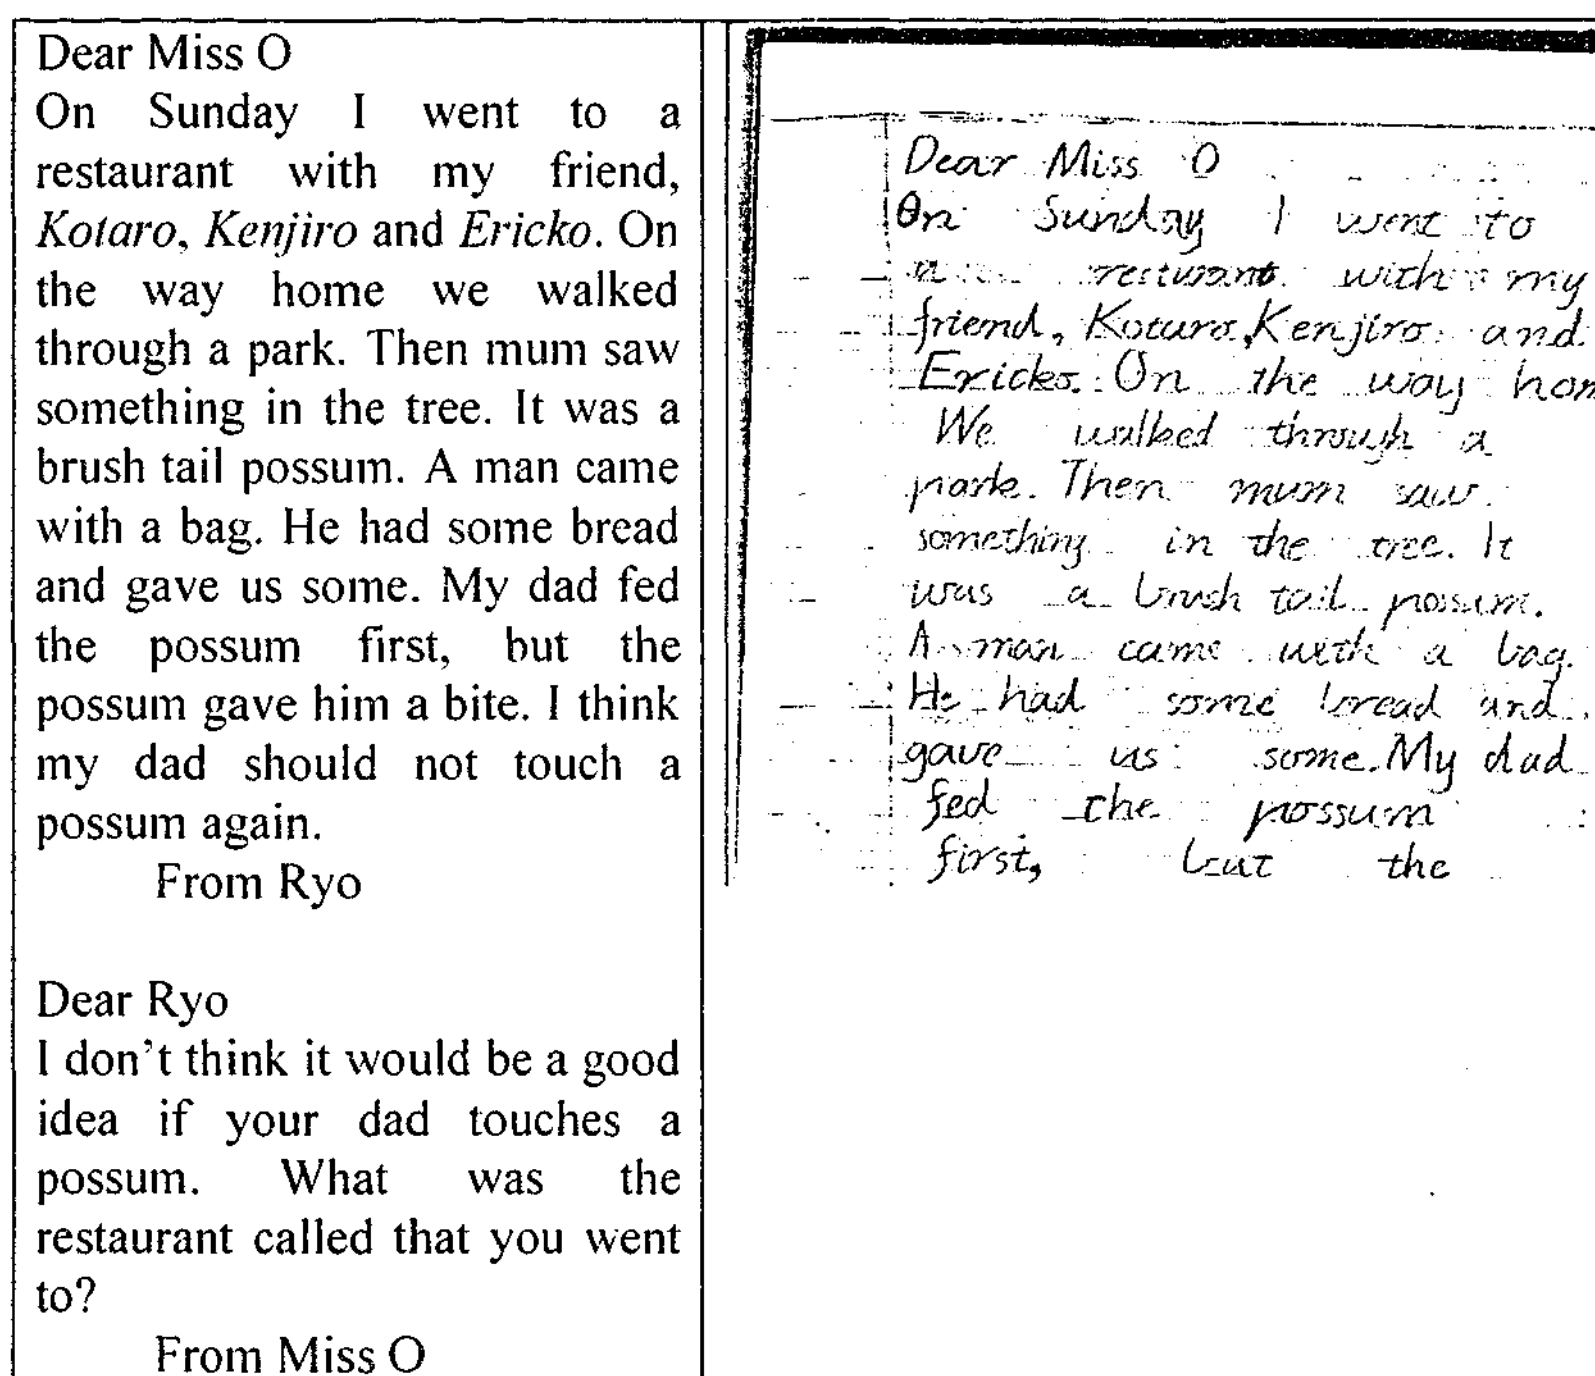 Dear Miss O
On Sunday I went to a
restaurant with my friend,
Kotaro, Kenjiro and Ericko. On
the way home we walked
through a park. Then mum saw
something in the tree. It was a
brush tail possum. A man came
with a bag. He had some bread
and gave us some. My dad fed
the possum first, but the
possum gave him a bite. I think
my dad should not touch a
possum again.
From Ryo
Dear Ryo
I don't think it would be a good
idea if your dad touches a
possum. What was the
restaurant called that you went
to?
From Miss O
Dear Miss O
On Sunday I went to
a resturant with my
friend, Kotaro, Kenjiro and
Ericko. On the way hom
We walked through a
park. Then mum saw
something in the tree. It
was a brush tail possum.
A man came with a bag.
He had some bread and
gave us some. My dad
fed the possum
first, but the